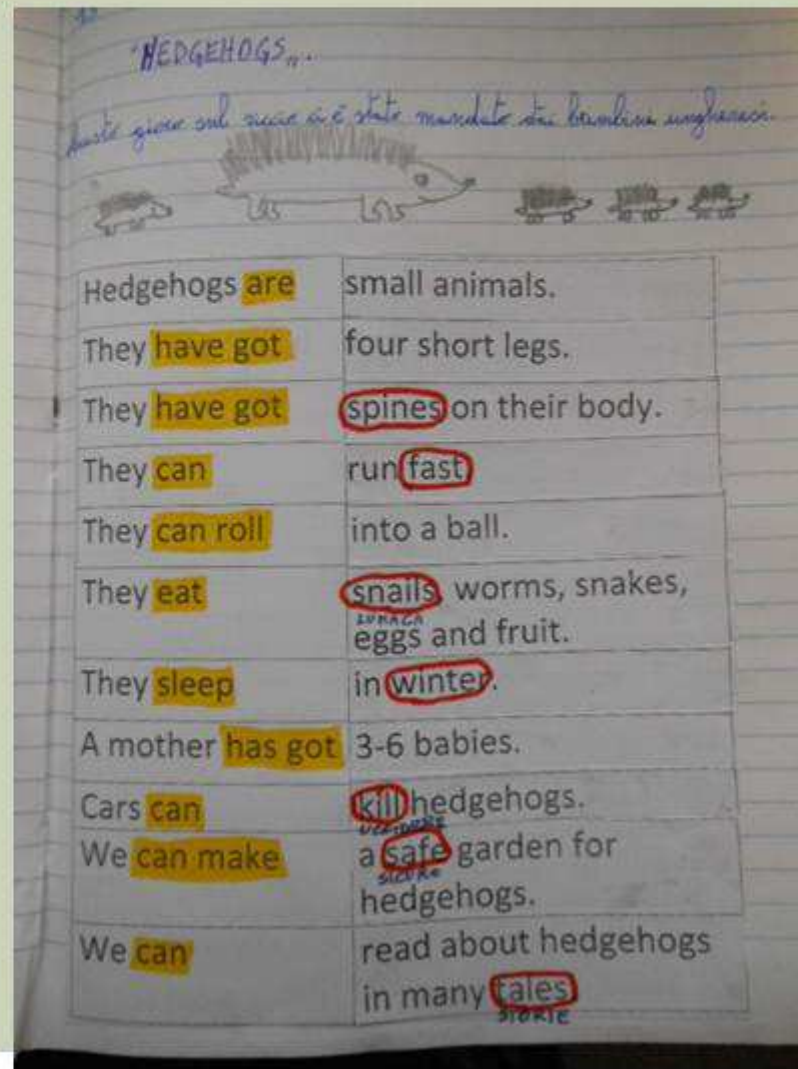 "HEDGEHOGS".
gioco sul riccio ci è stato mandato dai bambini ungheresi.
Hedgehogs are small animals.
They have got four short legs.
They have got spines on their body.
They can run fast
They can roll into a ball.
They eat snails, worms, snakes,
LUMACA
eggs and fruit.
They sleep in winter.
A mother has got 3-6 babies.
Cars can kill hedgehogs.
UCCIDERE
We can make a safe garden for
SICURO
hedgehogs.
We can read about hedgehogs
in many tales
STORIE